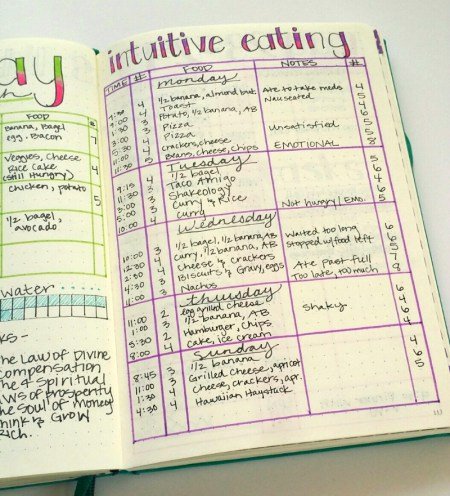 ay
FOOD #
Banana, Bagel
egg, Bacon 7
Veggies, Cheese 4
Rice Cake
(still hungry)
chicken, potato 5
1/2 bagel,
avocado
water
ks -
the Law of Divine
Compensation
The 4 Spiritual
Laws of Prosperity
The Soul of Money
Think & Grow
Rich...
intuitive eating
TIME # FOOD NOTES #
monday
4 1/2 banana, almond but. Ate to take meds 4
4 Toast Nauseated 5
3 Potato, 1/2 banana, AB 4
3 Pizza 6
Pizza Unsatisfied 5
4 crackers, cheese 5
11:30 5 Beans, cheese, chips EMOTIONAL 8
Tuesday
9:15 4 1/2 bagel 5
11:00 3 Taco Amigo 6
3:00 3 Shakeology 4
5:00 3 Curry & Rice 5
10:00 3 curry Not hungry/Emo. 6
Wednesday
10:00 3 1/2 bagel, 1/2 banana, AB Waited too long 6
12:30 4 Curry, 1/2 banana, AB Stopped w/food left 6
2:30 4 Cheese & crackers 5
4:30 3 Biscuits & Gravy, eggs Ate past full 7
11:30 3 Nachos Too late, too much 8
thursday
11:00 2 egg grilled cheese 6
1:00 3 1/2 banana, AB Shaky 4
5:30 2 Hamburger, chips 6
8:00 4 cake, ice cream 4
Sunday
8:45 3 1/2 banana 4
11:00 3 Grilled cheese, apricot 6
1:30 4 Cheese, crackers, apr. 5
4:30 4 Hawaiian Haystack